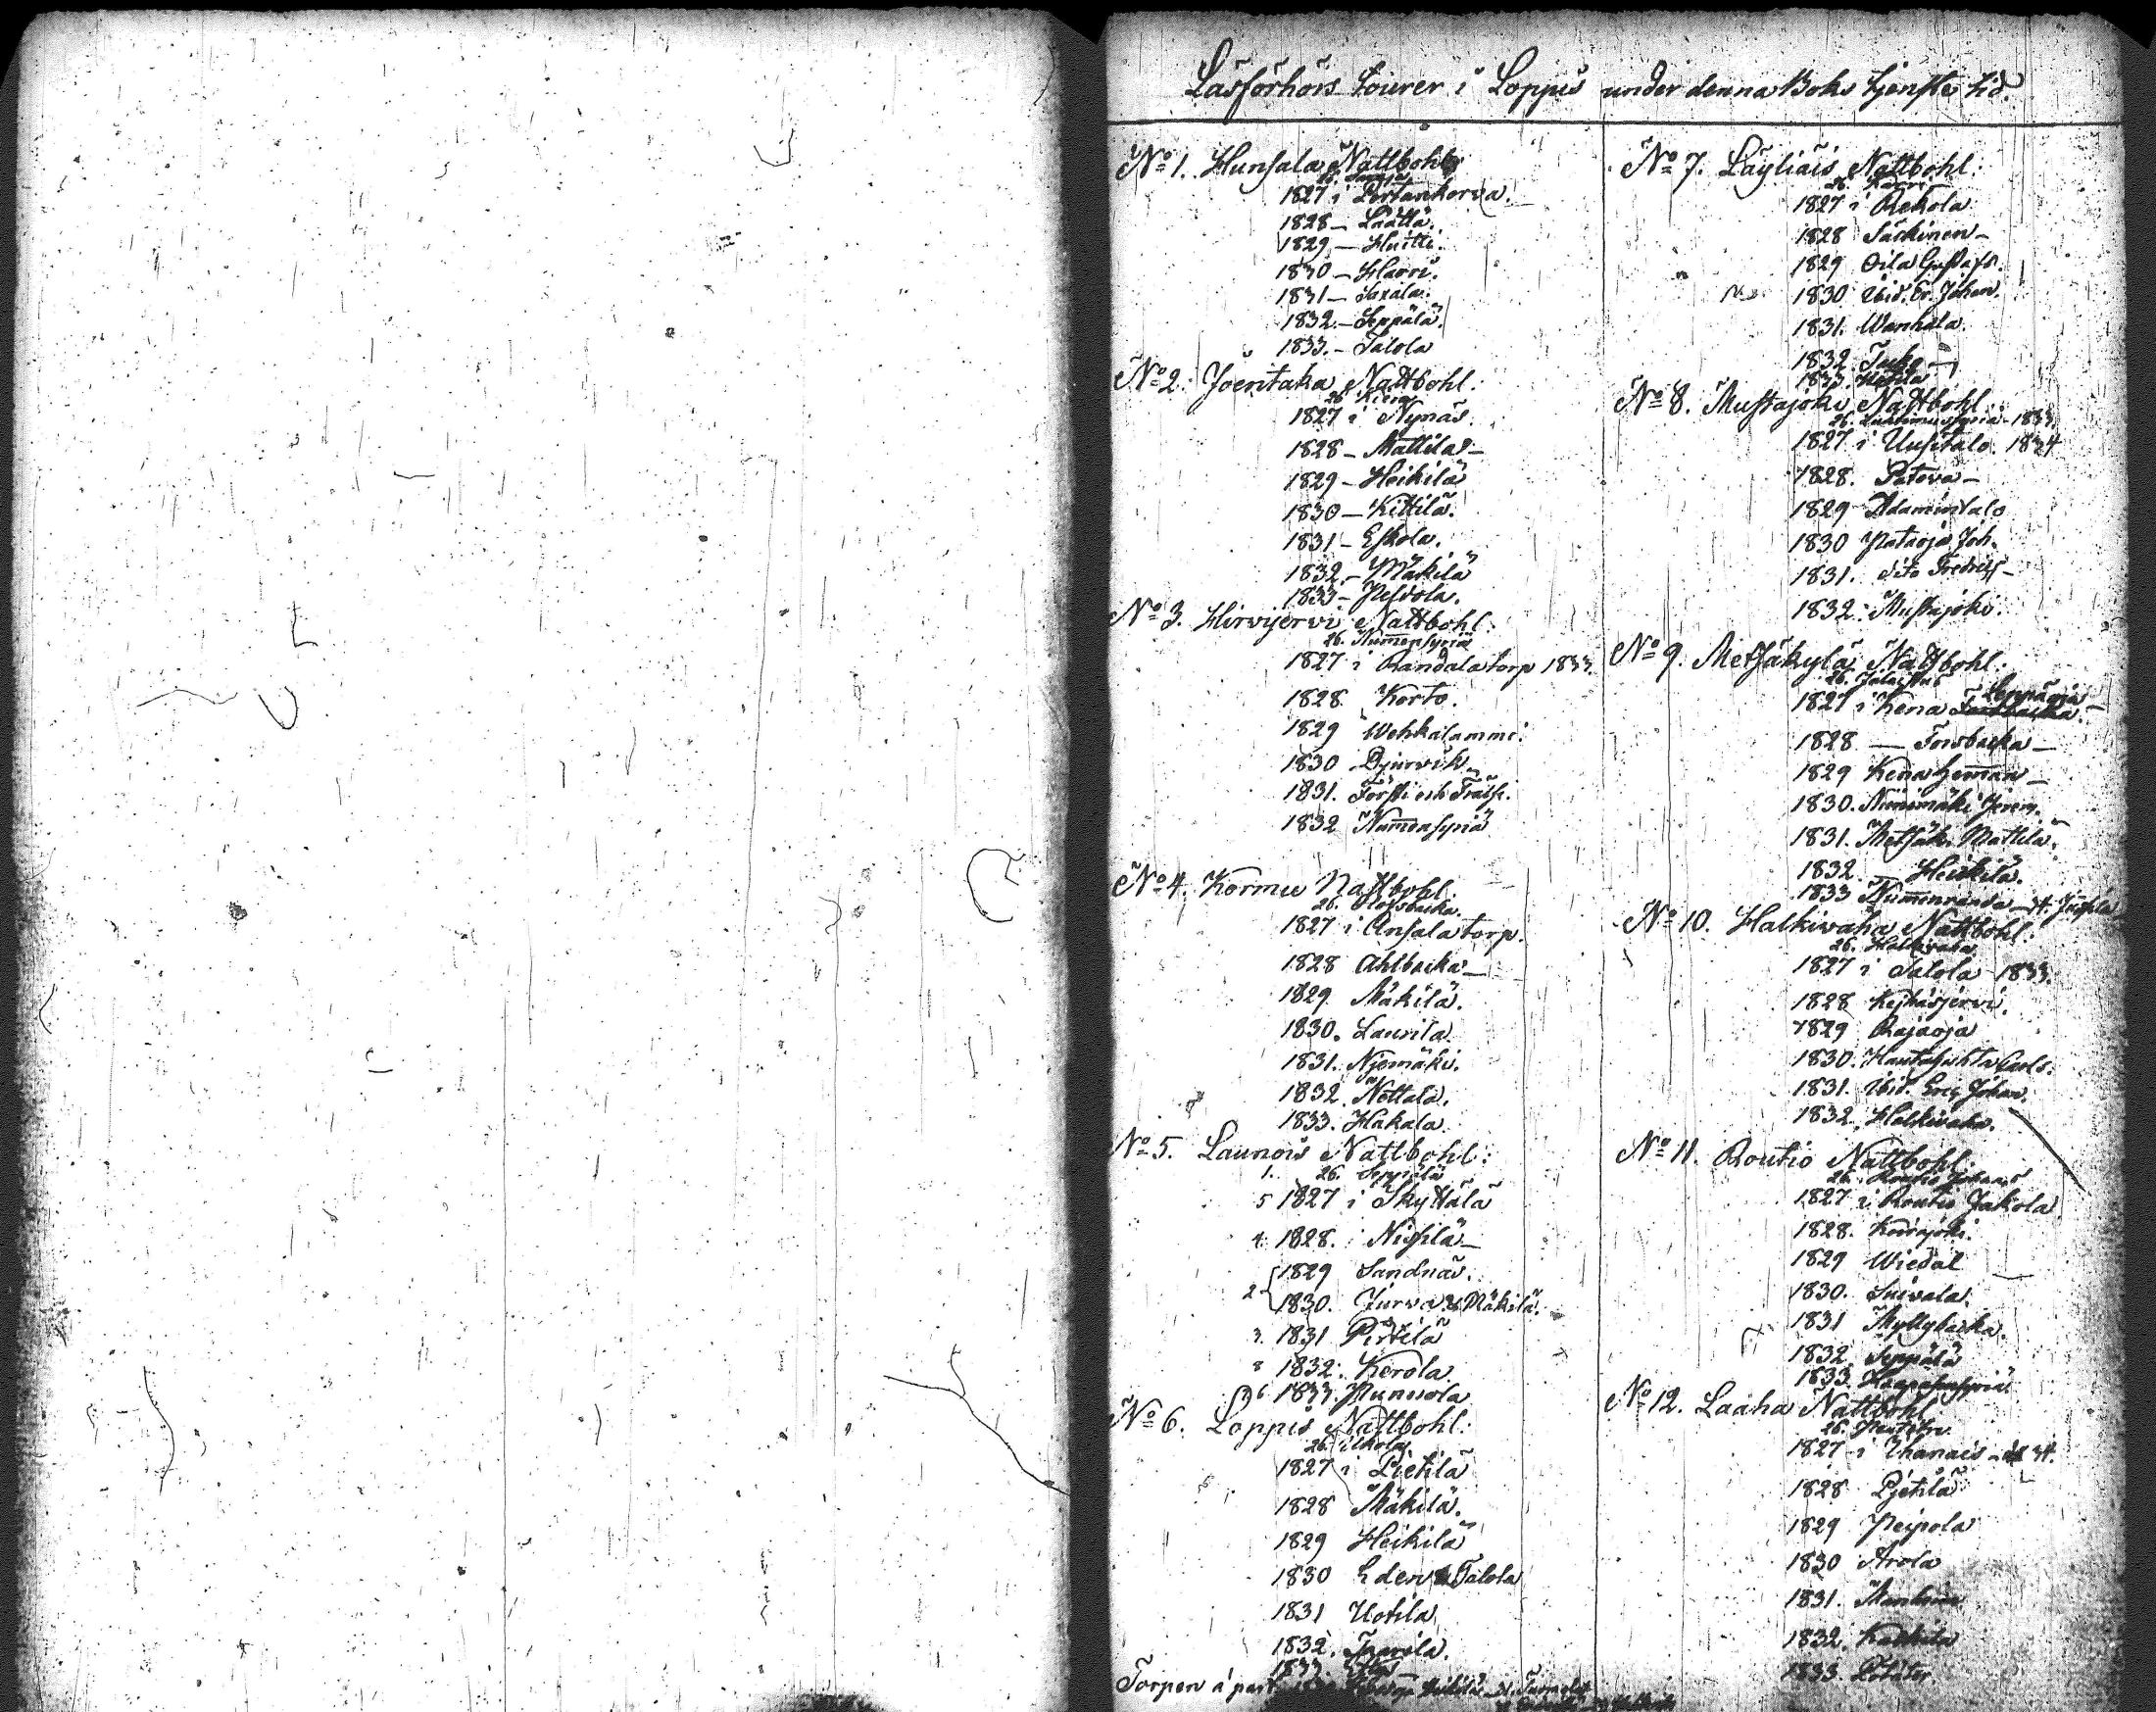 Läsförhörs tourer i Loppis under denna Boks tjenste tid.
No 1. Hunsala Nattbohl
1827 i Portankorva.
1828 — Läätlä.
1829 — Huitti.
1830 — Harri.
1831 —
1832. — Seppälä.
1833. — Talola
No 2. Joentaka Nattbohl:
1827 i Nynäs.
1828 — Mattila —
1829 — Heikilä
1830 — Kittilä.
1831 — Eskola.
1832. — Mäkilä
1833 — Peldola.
No 3. Hirvijervi Nattbohl:
26. Num̅ensyriä
1827 i Randala torp 1833.
1828. Korto.
1829 Wehkalammi.
1830 Djurvik
1831. Försti och
1832 Num̅ensyriä
No 4. Kormu Nattbohl.
26. Olofsbacka.
1827 i Ansala torp.
1828 Ahlbacka —
1829 Mäkilä.
1830. Laurila.
1831. Njemäki.
1832. Nottala.
1833. Hakala.
No 5. Launois Nattbohl:
1. 26. Seppälä
5 1827 i Skyttälä
4. 1828. Nissilä —
1829 Sandnäs.
2 1830. Jurva & Mäkilä.
3. 1831 Pirtilä
1832. Kerola
6 1833. Punnola
No 6. Loppis Nattbohl:
26.
1827 i Pietilä
1828 Mäkilä.
1829 Heikilä
1830 Eden & Talola
1831 Uotila
1832.
1833.
Torpen á part
No 7. Läyliäis Nattbohl:
1827 i Rekola
1828 Säskinen —
1829 Oila Gustafs.
1830 Ibid. Er. Johan.
1831. Wanhala.
1832.
1833.
No 8. Mustajoki Nattbohl.
1833
1827 i Uusitalo. 1834
1828. Patova —
1829 Adamintalo
1830 Pataoja Joh.
1831. dito Fredrics —
1832. Mustajoki.
No 9. Metsäkylä Nattbohl:
26.
Leppäoja —
1827 i Kena Forsbacka
1828 — Forsbacka —
1829 Kena
1830. Niinimäki Jerem.
1831. Metsäk. Mattila.
1832 — Heikilä.
1833 Num̅enranda —
No 10. Halkivaha Nattbohl:
26. Halkivaha
1827 i Talola 1833.
1828 Kejhäsjervi.
1829 Rajaoja
1830. Hautahuhta Carls.
1831. Ibid. Eric Johan.
1832. Halkivaha.
No 11. Routio Nattbohl:
26. Routio Johans
1827 i Routio Jakola
1828. Koirajoki.
1829 Wiedal
1830. Suivala.
1831 Myllybacka.
1832. Seppälä
1833. Haapasensyriä
No 12. Laaha Nattbohl
26.
1827 i Uhanais —
1828 Pjetilä
1829 Peipola
1830 Arola
1831.
1832. Kaukila
1833.